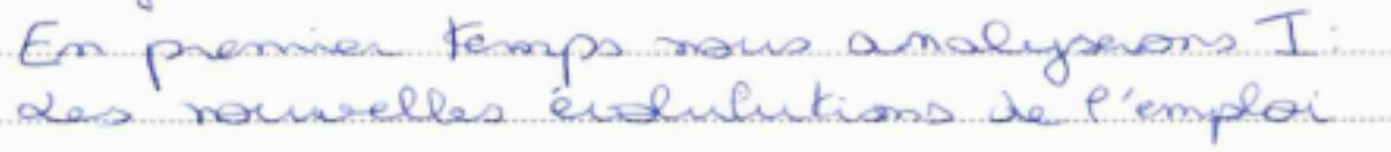 En premier temps nous analyserons I:
Les nouvelles évolulutions de l'emploi